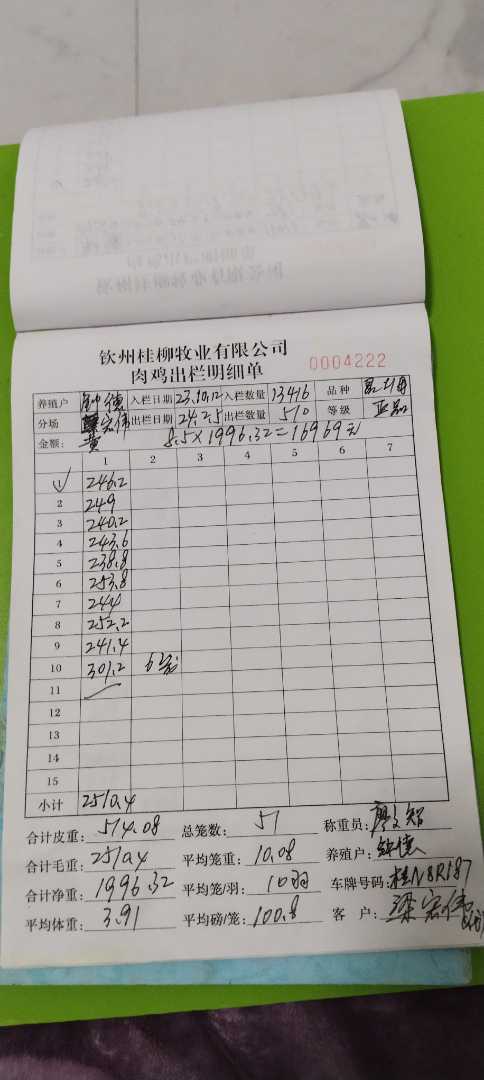 钦州桂柳牧业有限公司
肉鸡出栏明细单 0004222
养殖户 钟德 入栏日期 23.10.12 入栏数量 13416 品种
分场 宏伟 出栏日期 24.2.5 出栏数量 510 等级
金额: 8.5×1996.32=16969元
1 2 3 4 5 6 7
1 246.2
2 249
3 240.2
4 243.6
5 238.8
6 253.8
7 244
8 252.2
9 241.4
10 301.2 6笼
11
12
13
14
15
小计 2510.4
合计皮重: 514.08 总笼数: 51 称重员: 廖文智
合计毛重: 2510.4 平均笼重: 10.08 养殖户: 钟德
合计净重: 1996.32 平均笼/羽: 10羽 车牌号码: 桂N8R187
平均体重: 3.91 平均磅/笼: 100.8 客户: 梁宏伟